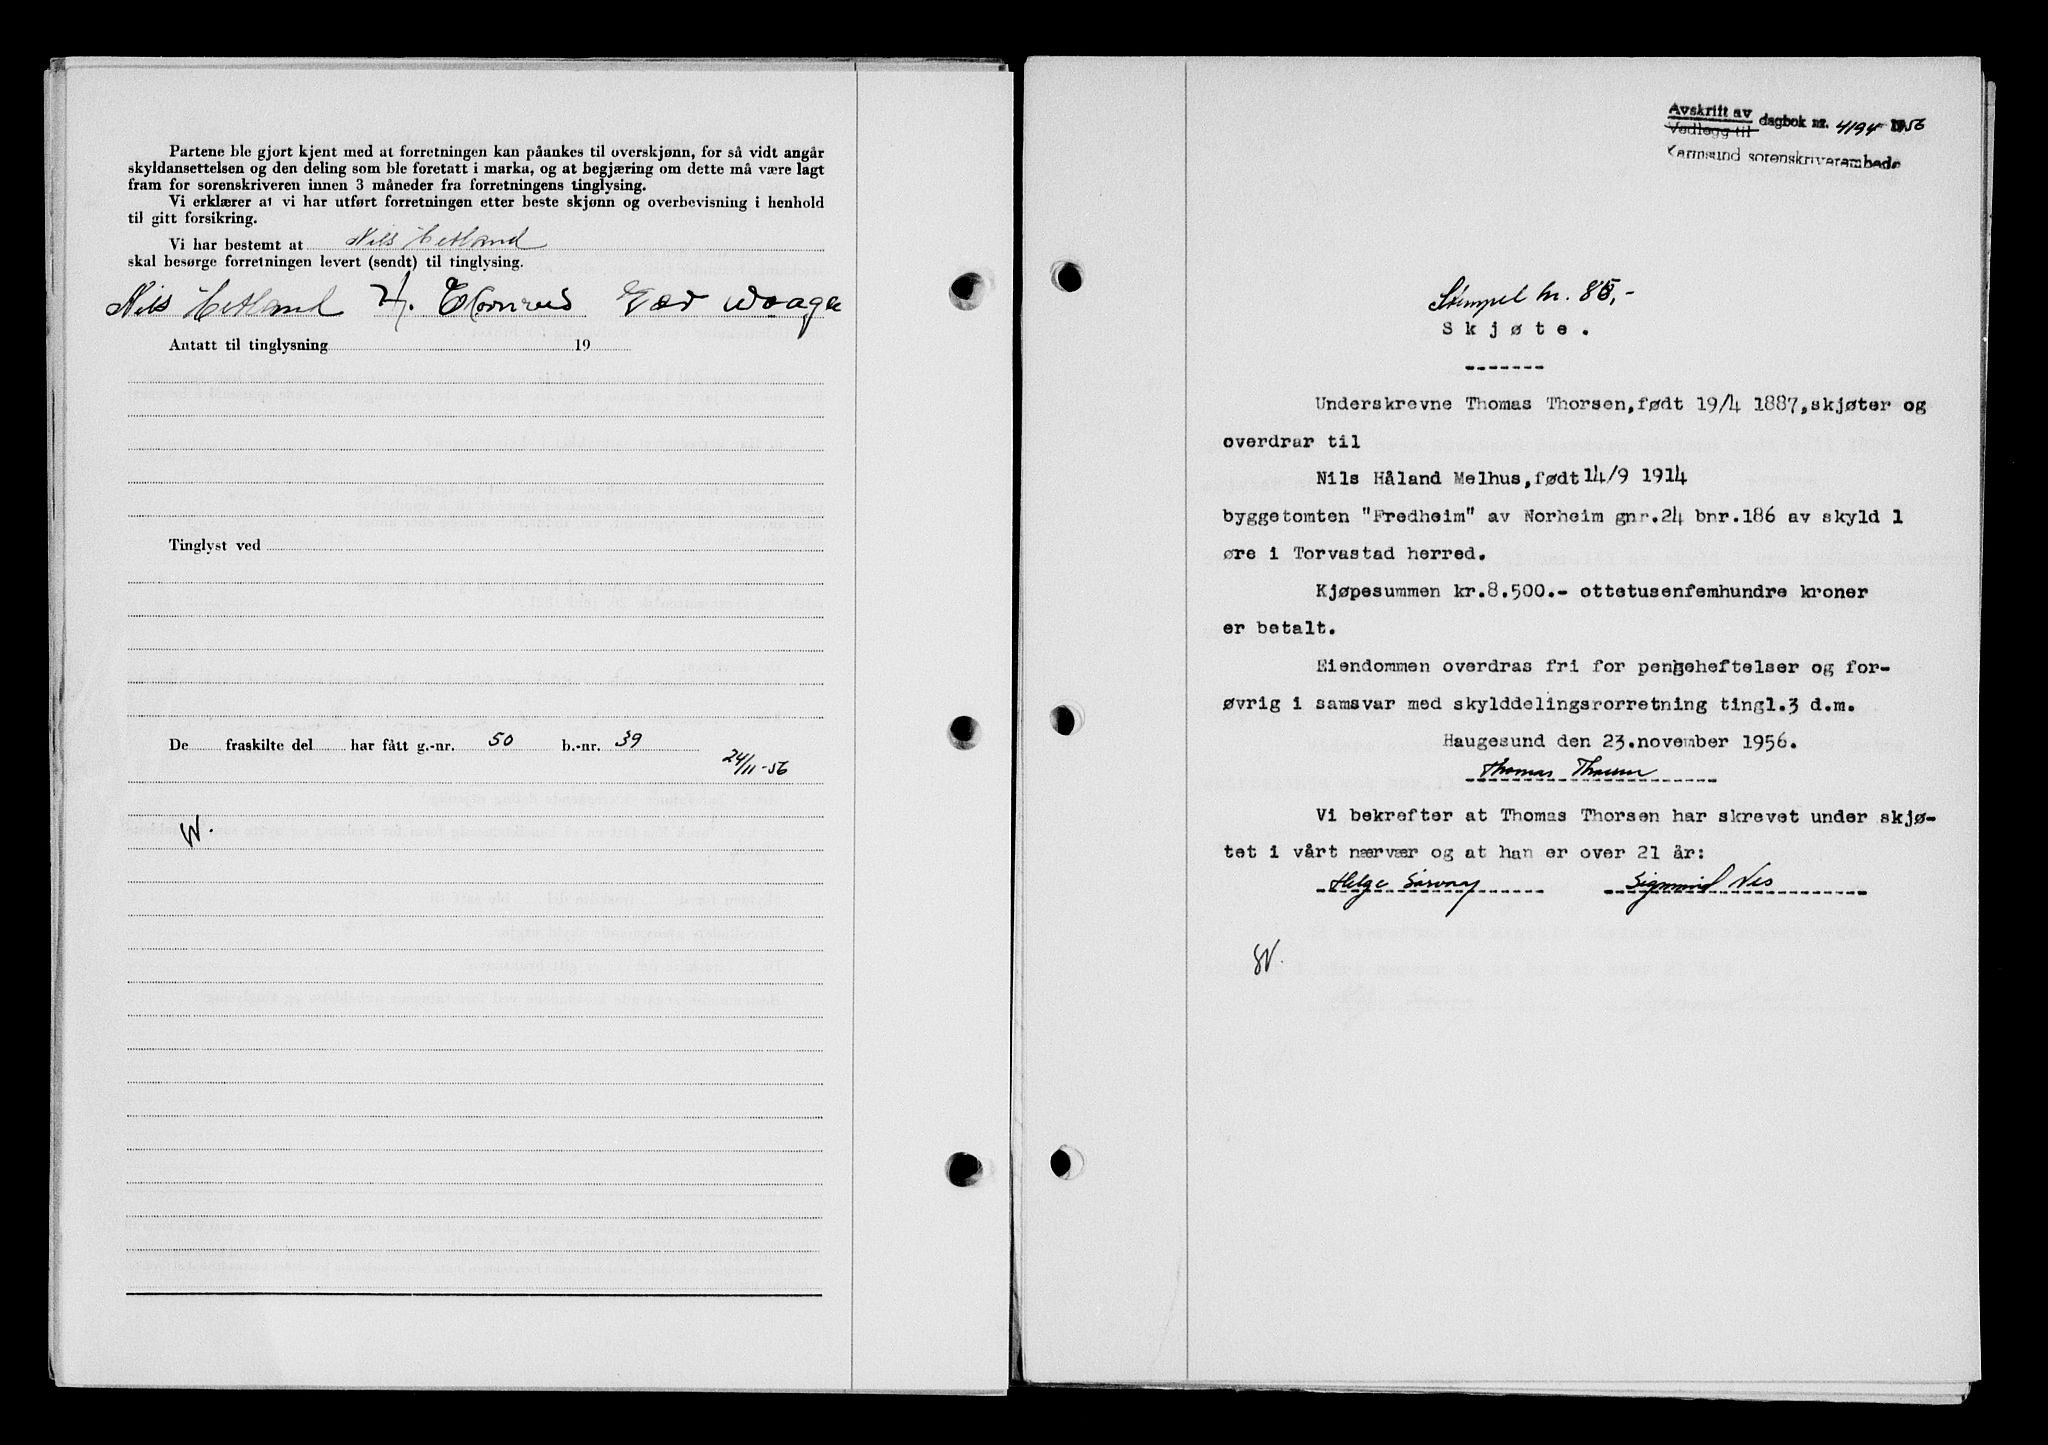 Partene ble gjort kjent med at forretningen kan påankes til overskjønn, for så vidt angår
skyldansettelsen og den deling som ble foretatt i marka, og at begjæring om dette må være lagt
fram for sorenskriveren innen 3 måneder fra forretningens tinglysing.
Vi erklærer at vi har utført forretningen etter beste skjønn og overbevisning i henhold
til gitt forsikring.
Vi har bestemt at Nils Hetland
skal besørge forretningen levert (sendt) til tinglysing.
Nils Hetland
Antatt til tinglysning 19
Tinglyst ved
De fraskilte del har fått g.-nr. 50 b.-nr. 39
24/11-56
W.
Avskrift av
Vedlegg til dagbok nr. 4194 1956
Karmsund sorenskriverembede
Stempel kr. 85,-
Skjøte.
-------
Underskrevne Thomas Thorsen,født 19/4 1887,skjøter og
overdrar til
Nils Håland Melhus,født 14/9 1914
byggetomten "Fredheim" av Norheim gnr.24 bnr.186 av skyld 1
øre i Torvastad herred.
Kjøpesummen kr.8.500.- ottetusenfemhundre kroner
er betalt.
Eiendommen overdras fri for pengeheftelser og for-
øvrig i samsvar med skylddelingsrorretning tingl.3 d.m.
Haugesund den 23.november 1956.
Thomas Thorsen
Vi bekrefter at Thomas Thorsen har skrevet under skjø-
tet i vårt nærvær og at han er over 21 år:
Helge Sigmund Nes
W.